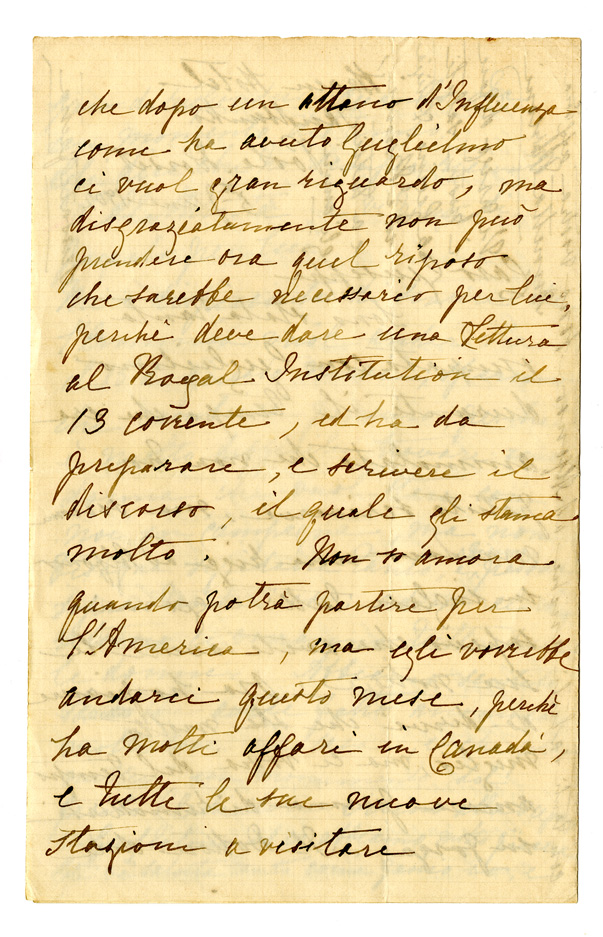 che dopo un attacco d'Influenza
come ha avuto Guglielmo
ci vuol gran riguardo, ma
disgraziatamente non può
prendere ora quel riposo
che sarebbe necessario per lui,
perchè deve dare una Lettura
al Royal Institution il
13 corrente, ed ha da
preparare, e scrivere il
discorso, il quale gli stanca
molto. Non so ancora
quando potrà partire per
l'America, ma egli vorrebbe
andarci questo mese, perchè
ha molti affari in Canadà,
e tutte le sue nuove
stazioni a visitare